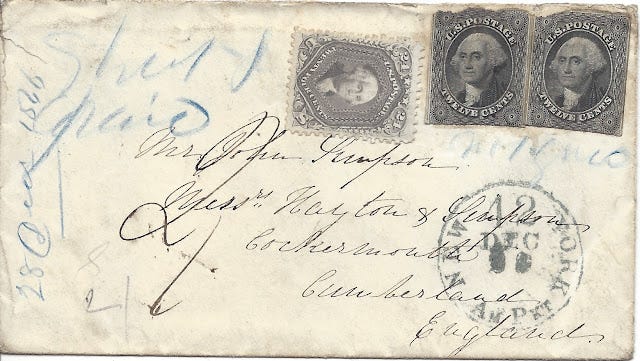 U.S. POSTAGE
TWELVE CENTS
U.S. POSTAGE
TWELVE CENTS
24
CENTS
28 Dec 1866
paid
Mr John Simpson
Messrs Hayton & Simpson
Cockermouth
Cumberland
England
NEW YORK
12
DEC
AM PKT